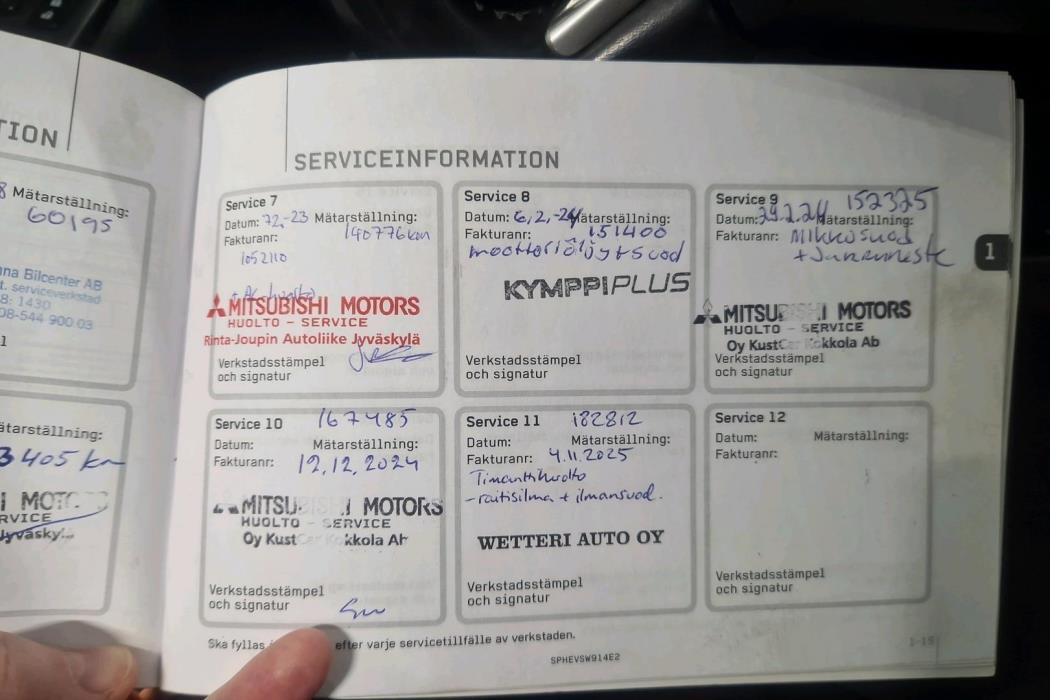 TION
Mätarställning:
60195
na Bilcenter AB
t. serviceverkstad
8: 1430
08-544 900 03
ätarställning:
3405 km
I MOT
RVICE
Jyväsky
SERVICEINFORMATION
Service 7
Datum: 7.2.-23 Mätarställning:
Fakturanr: 140776km
1052110
MITSUBISHI MOTORS
HUOLTO - SERVICE
Rinta-Joupin Autoliike Jyväskylä
Verkstadsstämpel
och signatur
Service 8
Datum: 6,2,-24 Mätarställning:
Fakturanr: 151400
moottoriöljy+suod
KYMPPIPLUS
Verkstadsstämpel
och signatur
Service 9 152325
Datum: 29.2.24 Mätarställning:
Fakturanr: Mikkosuod
+Jarruneste
MITSU I MOTORS
HUOLTO - SERVICE
Oy KustCar Kokkola Ab
Verkstadsstämpel
och signatur
1
Service 10 167485
Datum: Mätarställning:
Fakturanr: 12.12.2024
MITSU I MOTORS
HUOLTO - SERVICE
Oy KustCar kkola Ab
Verkstadsstämpel
och signatur
Service 11 182812
Datum: Mätarställning:
Fakturanr: 4.11.2025
Timanttihuolto
-raitisilma + ilmansuod.
WETTERI AUTO OY
Verkstadsstämpel
och signatur
Service 12
Datum: Mätarställning:
Fakturanr:
Verkstadsstämpel
och signatur
Ska fyllas efter varje servicetillfälle av verkstaden.
SPHEVSW914E2
1-15